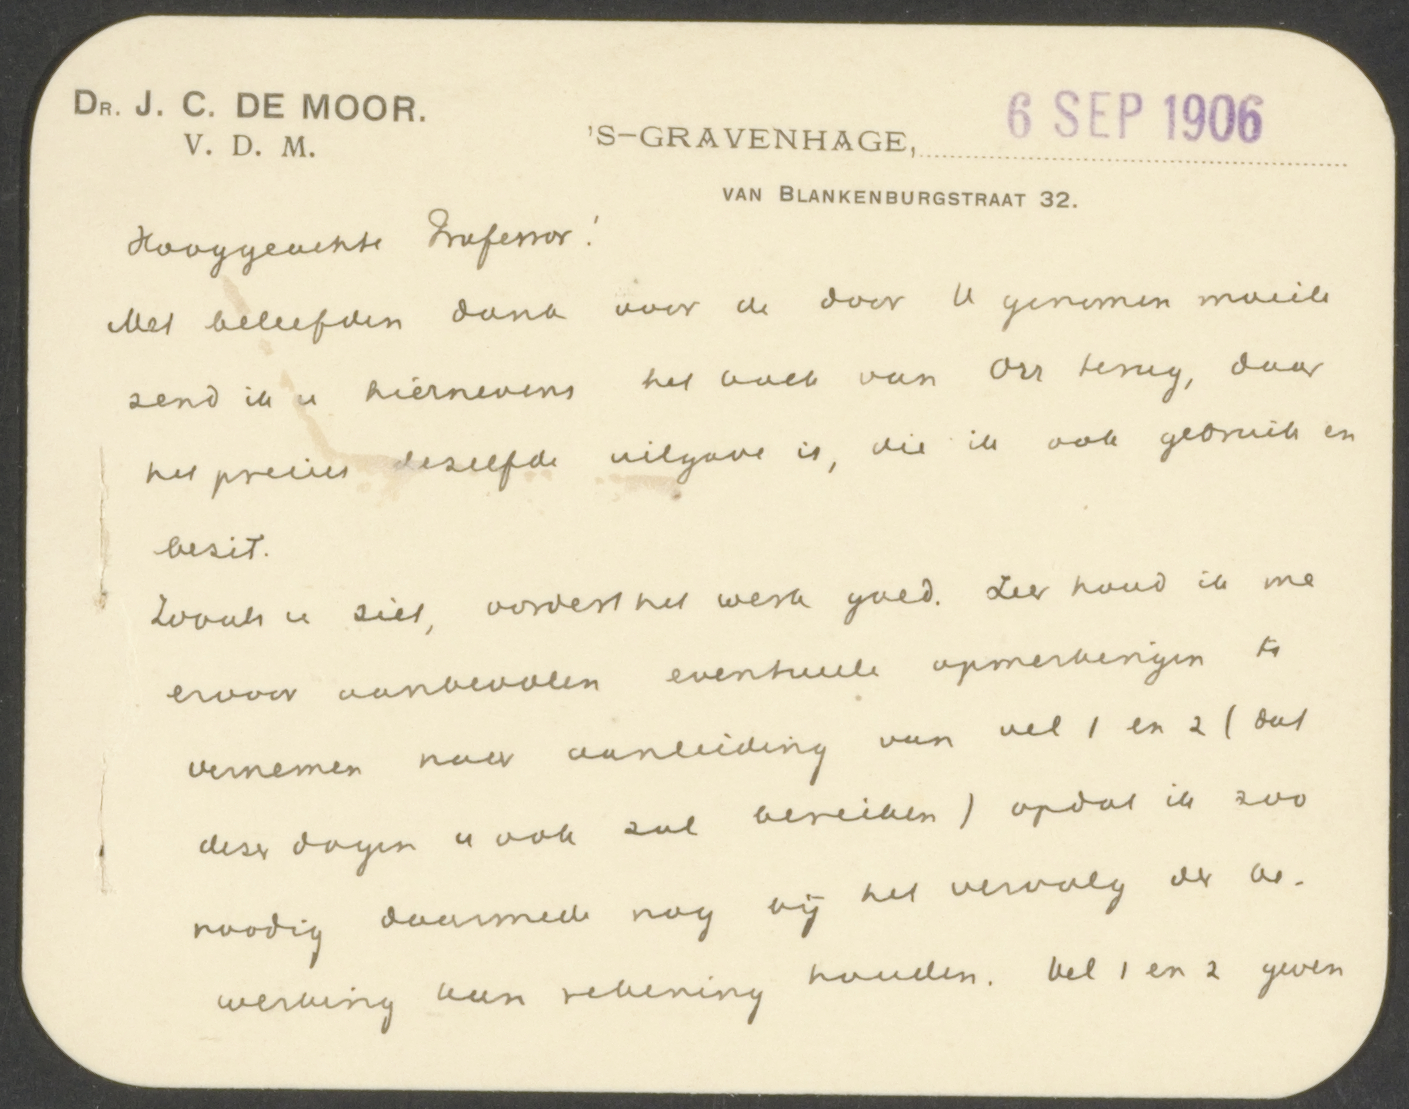 DR. J. C. DE MOOR.
V. D. M.
'S-GRAVENHAGE, 6 SEP 1906
VAN BLANKENBURGSTRAAT 32.
Hooggeachte Professor!
Met beleefden dank voor de door U genomen moeite
zend ik u hiernevens het boek van Orr terug, daar
het precies dezelfde uitgave is, die ik ook gebruik en
bezit.
Zooals u ziet, vordert het werk goed. Zeer houd ik me
ervoor aanbevolen eventueele opmerkingen te
vernemen naar aanleiding van vel 1 en 2 (dat
dezer dagen u ook zal bereiken) opdat ik zoo
noodig daarmede nog bij het vervolg der be-
werking kan rekening houden. Vel 1 en 2 geven